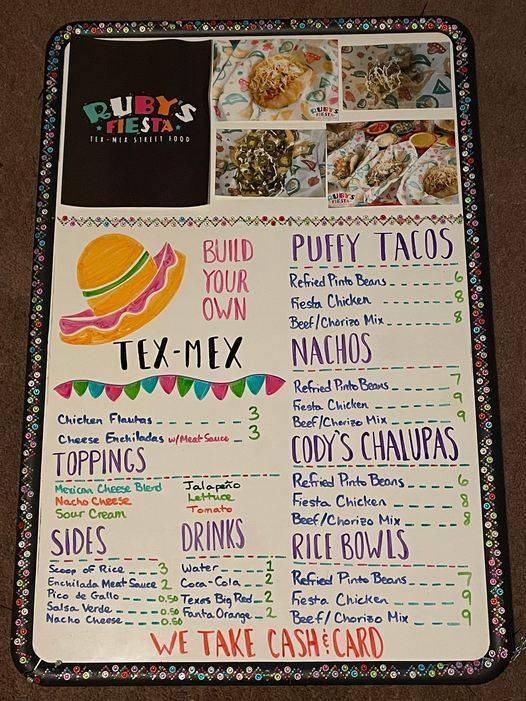 RUBY'S
FIESTA
TEX-MEX STREET FOOD
RUBY'S
FIESTA
RUBY'S
FIESTA
BUILD
YOUR
OWN
TEX-MEX
Chicken Flautas 3
Cheese Enchiladas w/Meat Sauce 3
TOPPINGS
Mexican Cheese Blend
Nacho Cheese
Sour Cream
Jalapeño
Lettuce
Tomato
SIDES
Scoop of Rice 3
Enchilada Meat Sauce 2
Pico de Gallo 0.50
Salsa Verde 0.50
Nacho Cheese 0.50
DRINKS
Water 1
Coca-Cola 2
Texas Big Red 2
Fanta Orange 2
PUFFY TACOS
Refried Pinto Beans 6
Fiesta Chicken 8
Beef/Chorizo Mix 8
NACHOS
Refried Pinto Beans 7
Fiesta Chicken 9
Beef/Chorizo Mix 9
CODY'S CHALUPAS
Refried Pinto Beans 6
Fiesta Chicken 8
Beef/Chorizo Mix 8
RICE BOWLS
Refried Pinto Beans 7
Fiesta Chicken 9
Beef/Chorizo Mix 9
WE TAKE CASH & CARD